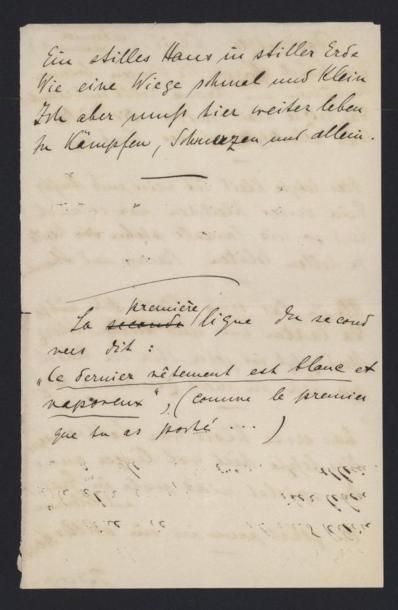 Ein stilles Haus in stiller Erde
Wie eine Wiege schmal und Klein
Ich aber muß hier weiter leben
In Kämpfen, Schmerzen und allein.
première
La seconde ligne du second
vers dit :
„Ce dernier vêtement est blanc et
vaporeux“, (comme le premier
que tu as porté ... )